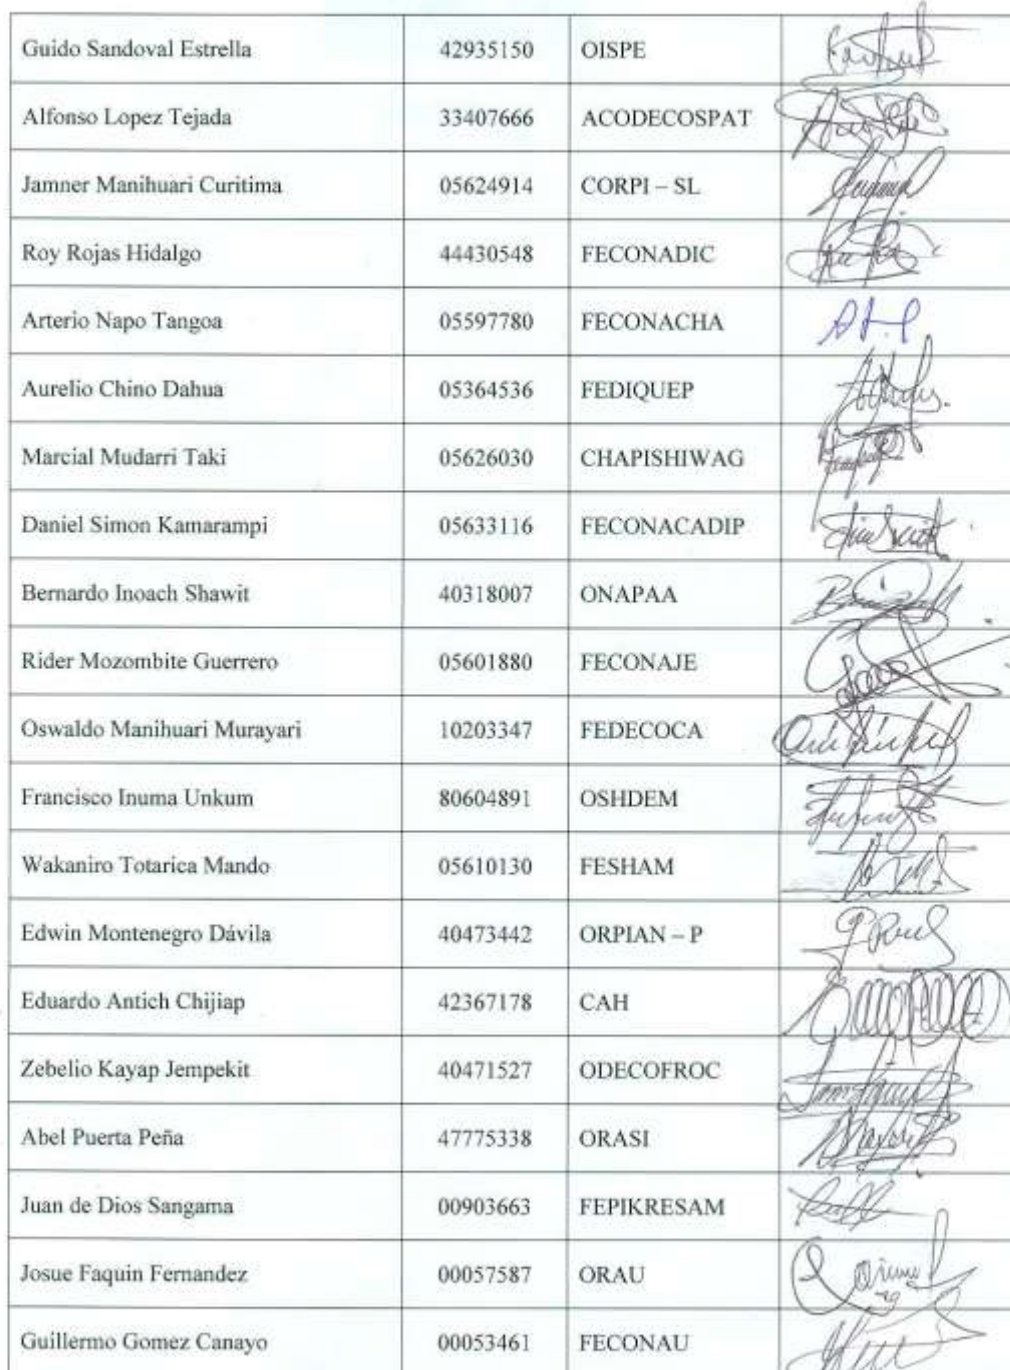 Guido Sandoval Estrella 42935150 OISPE
Alfonso Lopez Tejada 33407666 ACODECOSPAT
Jamner Manihuari Curitima 05624914 CORPI – SL
Roy Rojas Hidalgo 44430548 FECONADIC
Arterio Napo Tangoa 05597780 FECONACHA
Aurelio Chino Dahua 05364536 FEDIQUEP
Marcial Mudarri Taki 05626030 CHAPISHIWAG
Daniel Simon Kamarampi 05633116 FECONACADIP
Bernardo Inoach Shawit 40318007 ONAPAA
Rider Mozombite Guerrero 05601880 FECONAJE
Oswaldo Manihuari Murayari 10203347 FEDECOCA
Francisco Inuma Unkum 80604891 OSHDEM
Wakaniro Totarica Mando 05610130 FESHAM
Edwin Montenegro Dávila 40473442 ORPIAN – P
Eduardo Antich Chijiap 42367178 CAH
Zebelio Kayap Jempekit 40471527 ODECOFROC
Abel Puerta Peña 47775338 ORASI
Juan de Dios Sangama 00903663 FEPIKRESAM
Josue Faquin Fernandez 00057587 ORAU
Guillermo Gomez Canayo 00053461 FECONAU